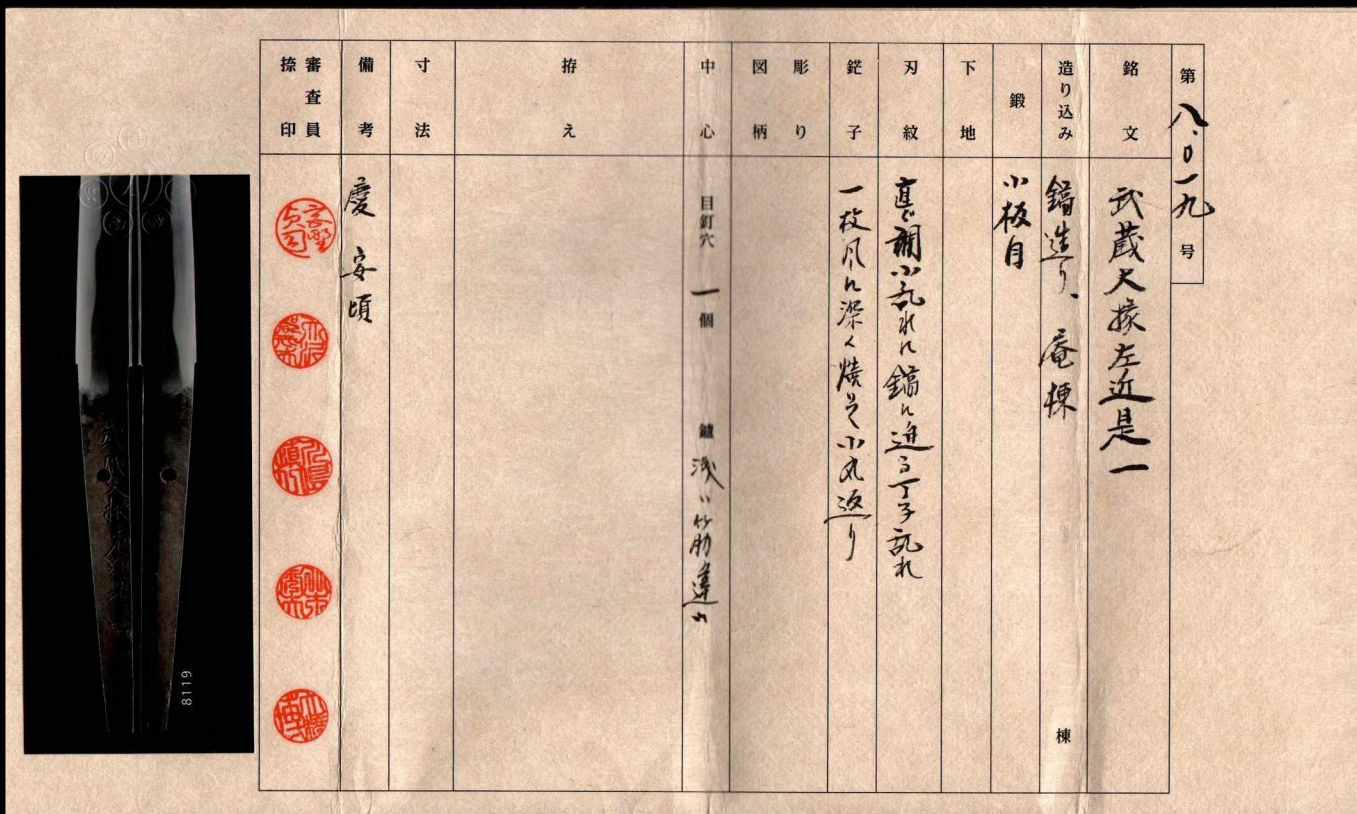 第八.0一九号
銘文 武蔵大掾左近是一
造り込み 鎬造り、庵棟 棟
鍛 小板目
下地
刃紋 直ぐ調小乱れに鎬に迫る丁子乱れ
鋩子 一枚風に深く焼き小丸返り
彫り図柄
中心 目釘穴 一個 鑢 浅い筋違い
拵え
寸法
備考 慶安頃
審査員捺印
8119